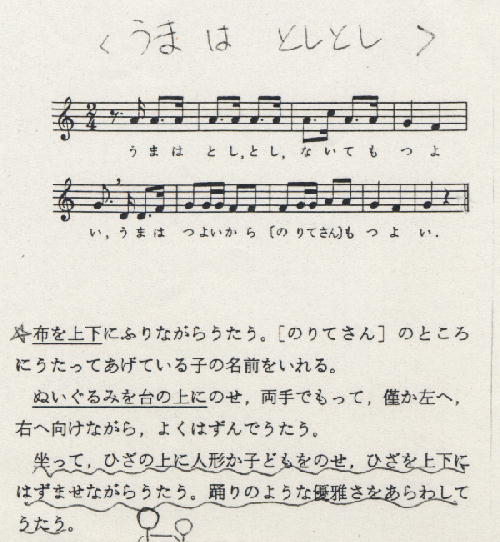 ＜うまは としとし＞
2
4
うまは とし,とし, ないても つよ
い, うまは つよいから 〔のりてさん〕も つよい.
布を上下にふりながらうたう。［のりてさん］のところ
にうたってあげている子の名前をいれる。
ぬいぐるみを台の上にのせ，両手でもって，僅か左へ，
右へ向けながら，よくはずんでうたう。
坐って，ひざの上に人形か子どもをのせ，ひざを上下に
はずませながらうたう。踊りのような優雅さをあらわして
うたう。